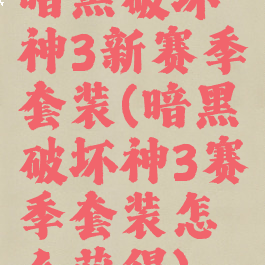 暗黑破坏
神3新赛季
套装(暗黑
破坏神3赛
季套装怎
么获得)